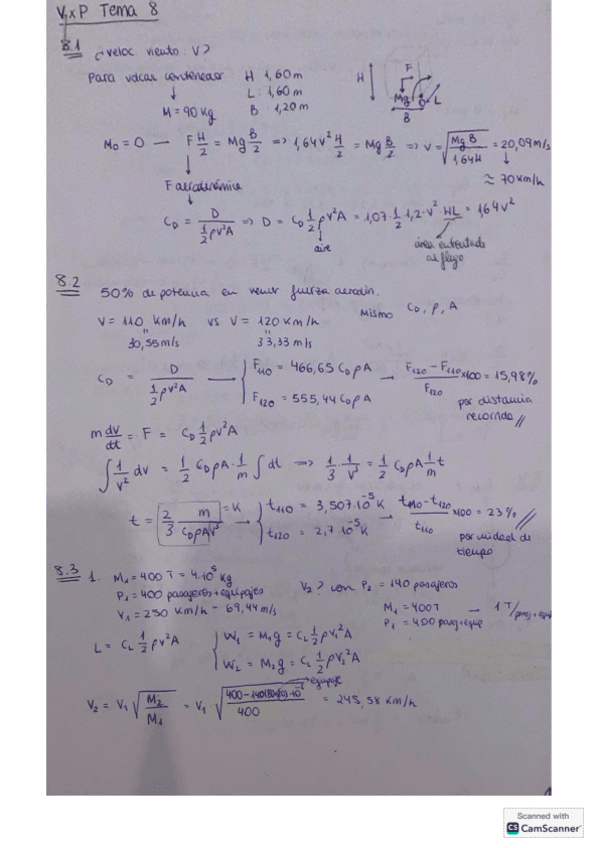 VxP Tema 8
8.1 ¿veloc viento V?
Para volcar contenedor H 1,60m
L 1,60m
M = 90 kg B 1,20m
H F Mg O L B
M₀ = 0 → F H/2 = Mg B/2 => 1,64v² H/2 = Mg B/2 => v = √(Mg B / 1,64H) = 20,09 m/s
≈ 70 km/h
F aerodinámica
C_D = D / (½ρv²A) => D = C_D ½ ρv²A = 1,07·½·1,2·v² HL = 1,64v²
aire
área enfrentada al flujo
8.2 50% de potencia en vencer fuerza aerodin.
V = 110 km/h vs V = 120 km/h Mismo C_D, ρ, A
30,55 m/s 33,33 m/s
C_D = D / (½ρv²A) → { F₁₁₀ = 466,65 C_D ρ A
F₁₂₀ = 555,44 C_D ρ A → (F₁₂₀ − F₁₁₀)/F₁₂₀ ×100 = 15,98%
por distancia recorrida //
m dv/dt = F = C_D ½ ρv²A
∫ 1/v² dv = ½ C_D ρA · 1/m ∫ dt => ⅓ · 1/v³ = ½ C_D ρA 1/m t
t = 2/3 m/(C_D ρAv³) = K → { t₁₁₀ = 3,507·10⁻⁵ K
t₁₂₀ = 2,7·10⁻⁵ K → (t₁₁₀ − t₁₂₀)/t₁₁₀ ×100 = 23% //
por unidad de tiempo
8.3 1. M₁ = 400 T = 4·10⁵ kg
P₁ = 400 pasajeros+equipajes V₂? con P₂ = 140 pasajeros
V₁ = 250 km/h − 69,44 m/s M₁ = 400T → 1T/
P₁ = 400 pasaj+equip
L = C_L ½ ρv²A { W₁ = M₁g = C_L ½ ρv₁²A
W₂ = M₂g = C_L ½ ρv₂²A
equipaje
V₂ = V₁ √(M₂/M₁) = V₁ · = 245,58 km/h
Scanned with
CS CamScanner